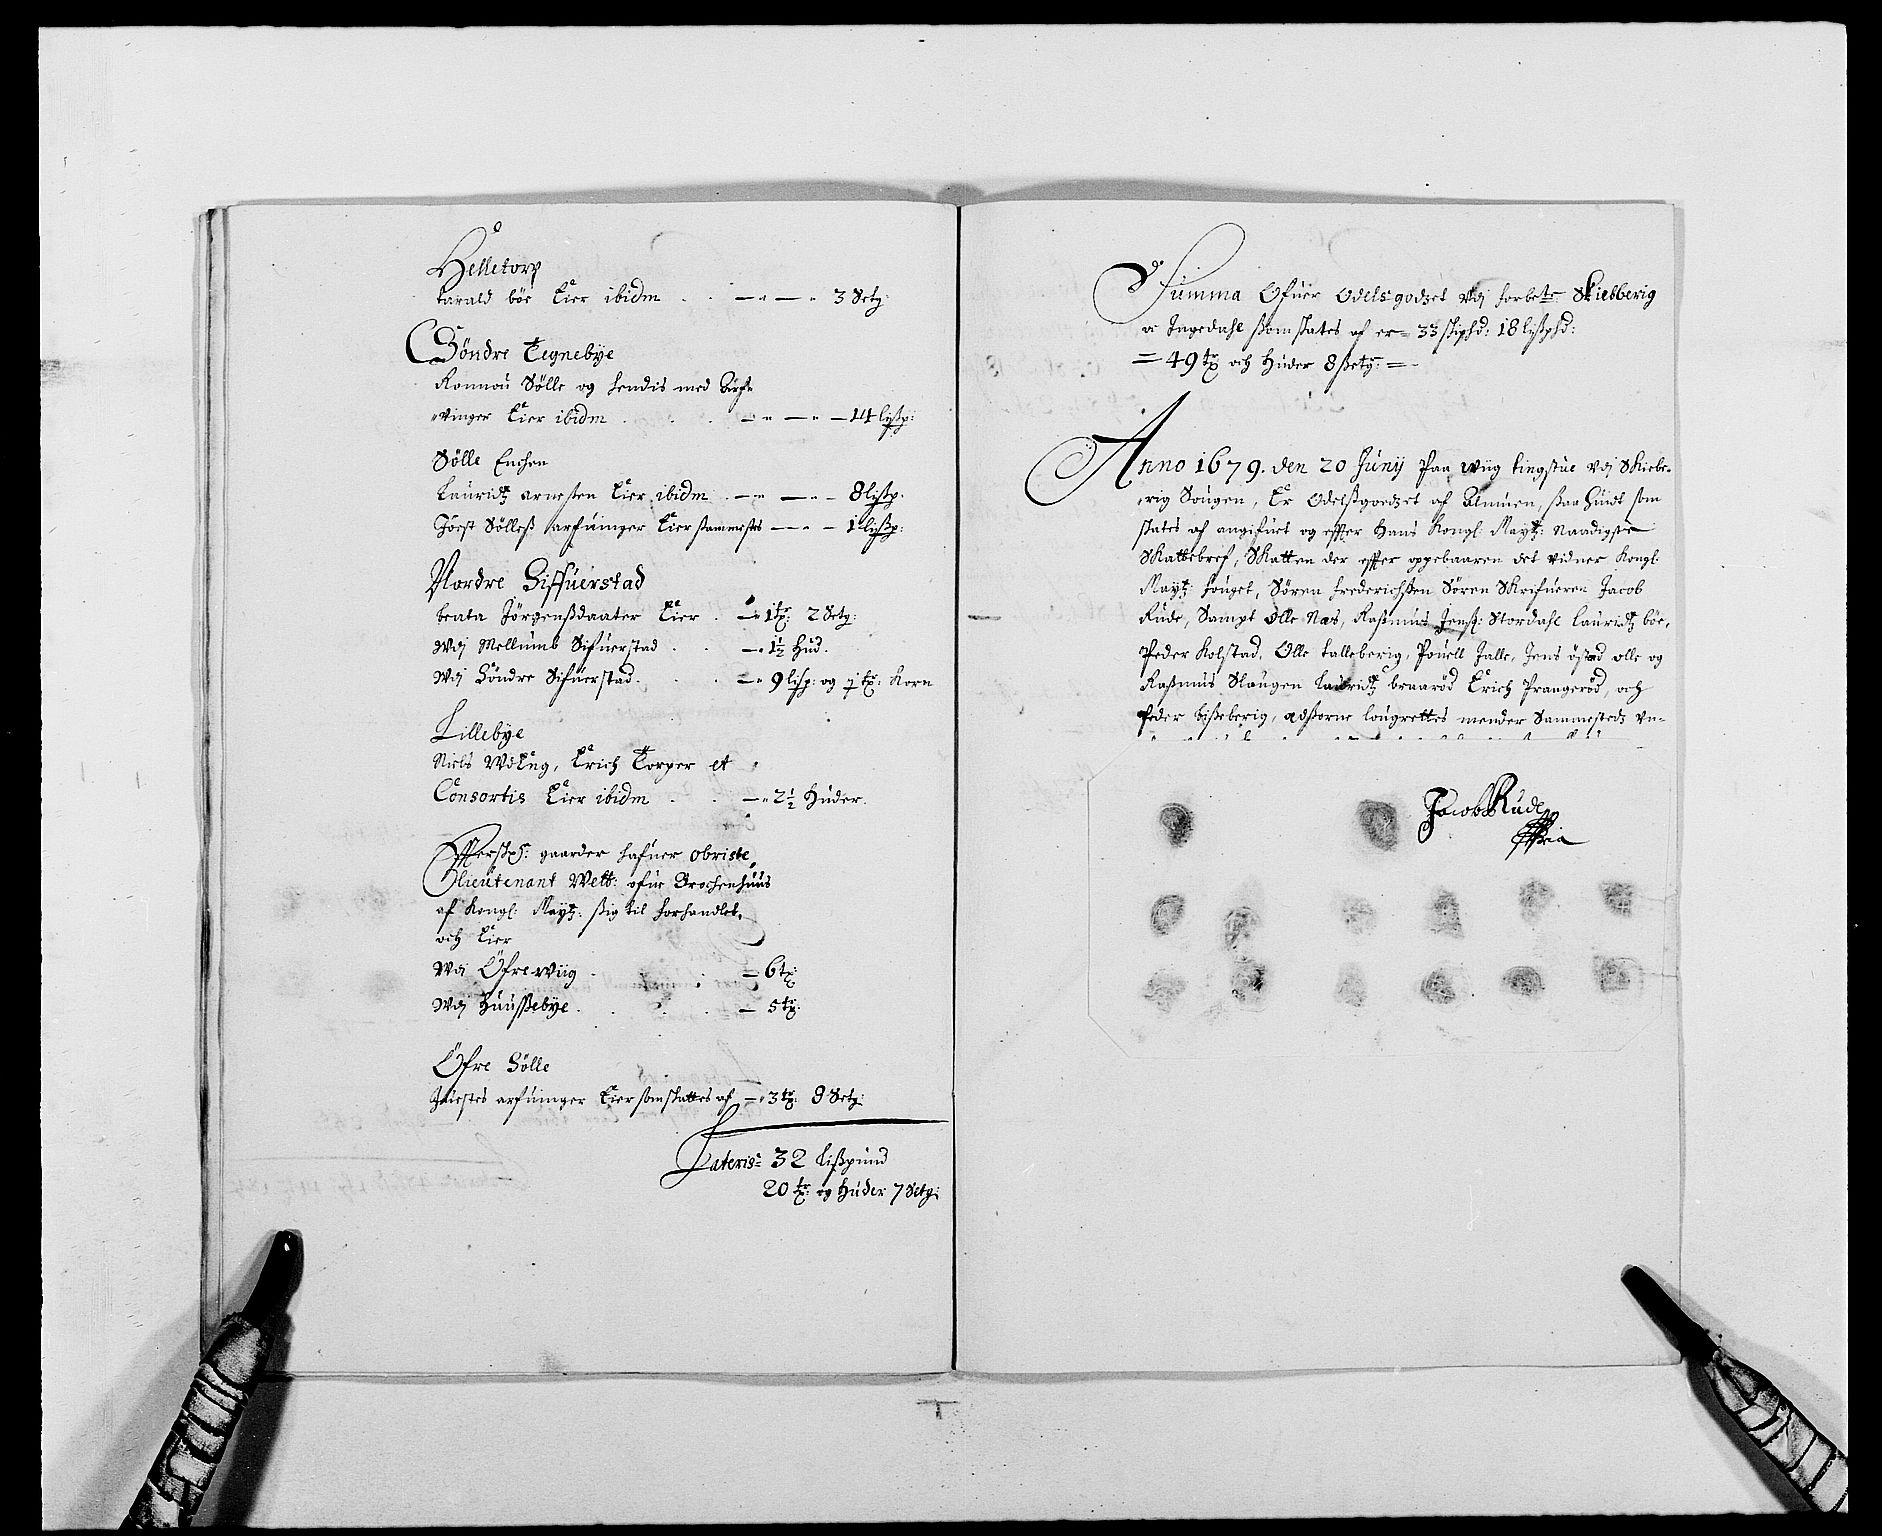 Helletorp
harald böe Eier ibidm . . — " — " 3 Setg:
Söndre Tegnebye
Ronnou Sölle og hendis med Arf-
"vinger Eier ibidm . . . — " — " — 14 lispp:
Sölle Enchen
Lauridtz arnesen Eier ibidm . — " — " 8 lispp.
Joest Sölless arfuinger Eier sammestes — " — 1 lispp:
Nordre Siffuerstad
beata Jörgenssdaater Eier . — " 1 tr: 2 Setg:
Wdj Mellumb Sifuerstad . . — " 1½ Hud.
Wdj Söndre Sifuerstad . . . — " 9 lisp: og tr: Korn
Lillebye
Niels Erich Torper et
Consortis Eier ibidm . . — " 2½ Huder.
gaarder hafuer obriste
lieutenant Brochenhuus
af Kongl: Maytz: ssig til forhandlet,
och Eier
Wdj Öfre wiig . . . — 6 tr
Wdj Huussebye . . . . — 5 tr:
Öfre Sölle
arfuinger Eier som skattes af — " 3 tr: 8 Setg:
Lateris: 32 Lisspund
20 tr: og Huder 7 Setg:
Summa Ofuer Odelsgodzet Vdj Skiebberig
oc Ingedahl som skates af er = 33 skiphd: 18 lisphd:
= 49 tr och Huder 8 setg: =
Anno 1679. den 20 Junij Paa wiig tingstue Vdj Skieb-
erig Sougen, Er Odelssgoedzet af Almuen, ssaa Huidt som
skates af angifuet og effter Hans Kongl: Maytz: Naadigste
Skattebref, Skatten der effter oppebaaren det vidner Kongl
Maytz fouget, Sören frederichssen Sören Skrifueren Jacob
Rude, Sampt Olle Næs, Rassmus Jenss: Stordahl lauridtz böe,
Peder Kolstad, Olle talleberig, Pouell Jalle, Jens östad olle og
Rassmus Slaugen Lauridtz braaröd Erich Prangeröd, och
Peder bisseberig, lougrettes mender Sammestedz vn-
Jacob Rude